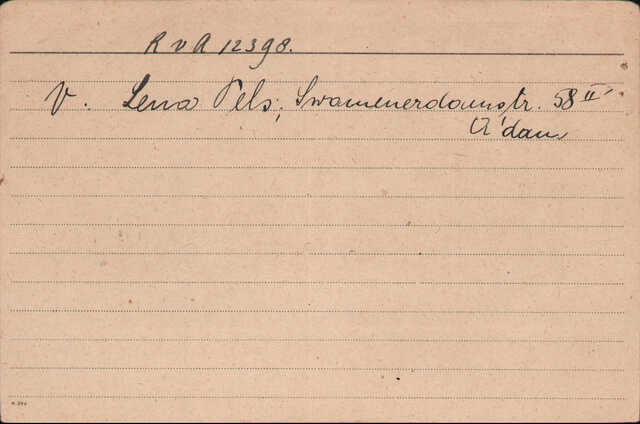 R v A 12398.
V. Lena Pels, Swamenerdamstr. 58 II
A'dam